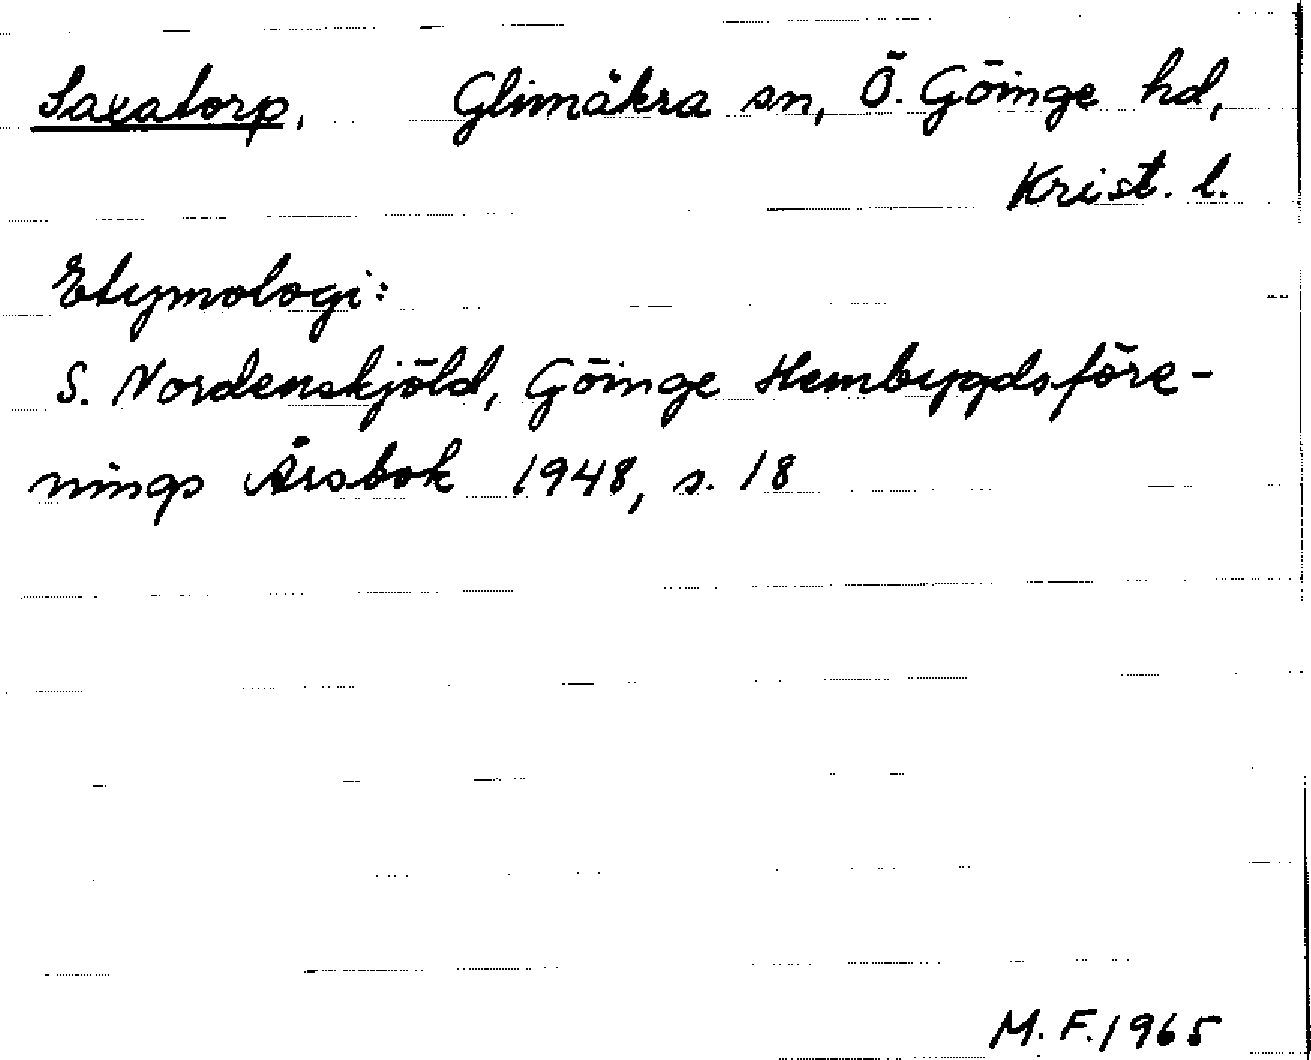 Saxatorp, Glimåkra sn, Ö. Göinge hd,
Krist. l.
Etymologi:
S. Nordenskjöld, Göinge Hembygdsföre-
nings Årsbok 1948, s. 18
M. F. 1965